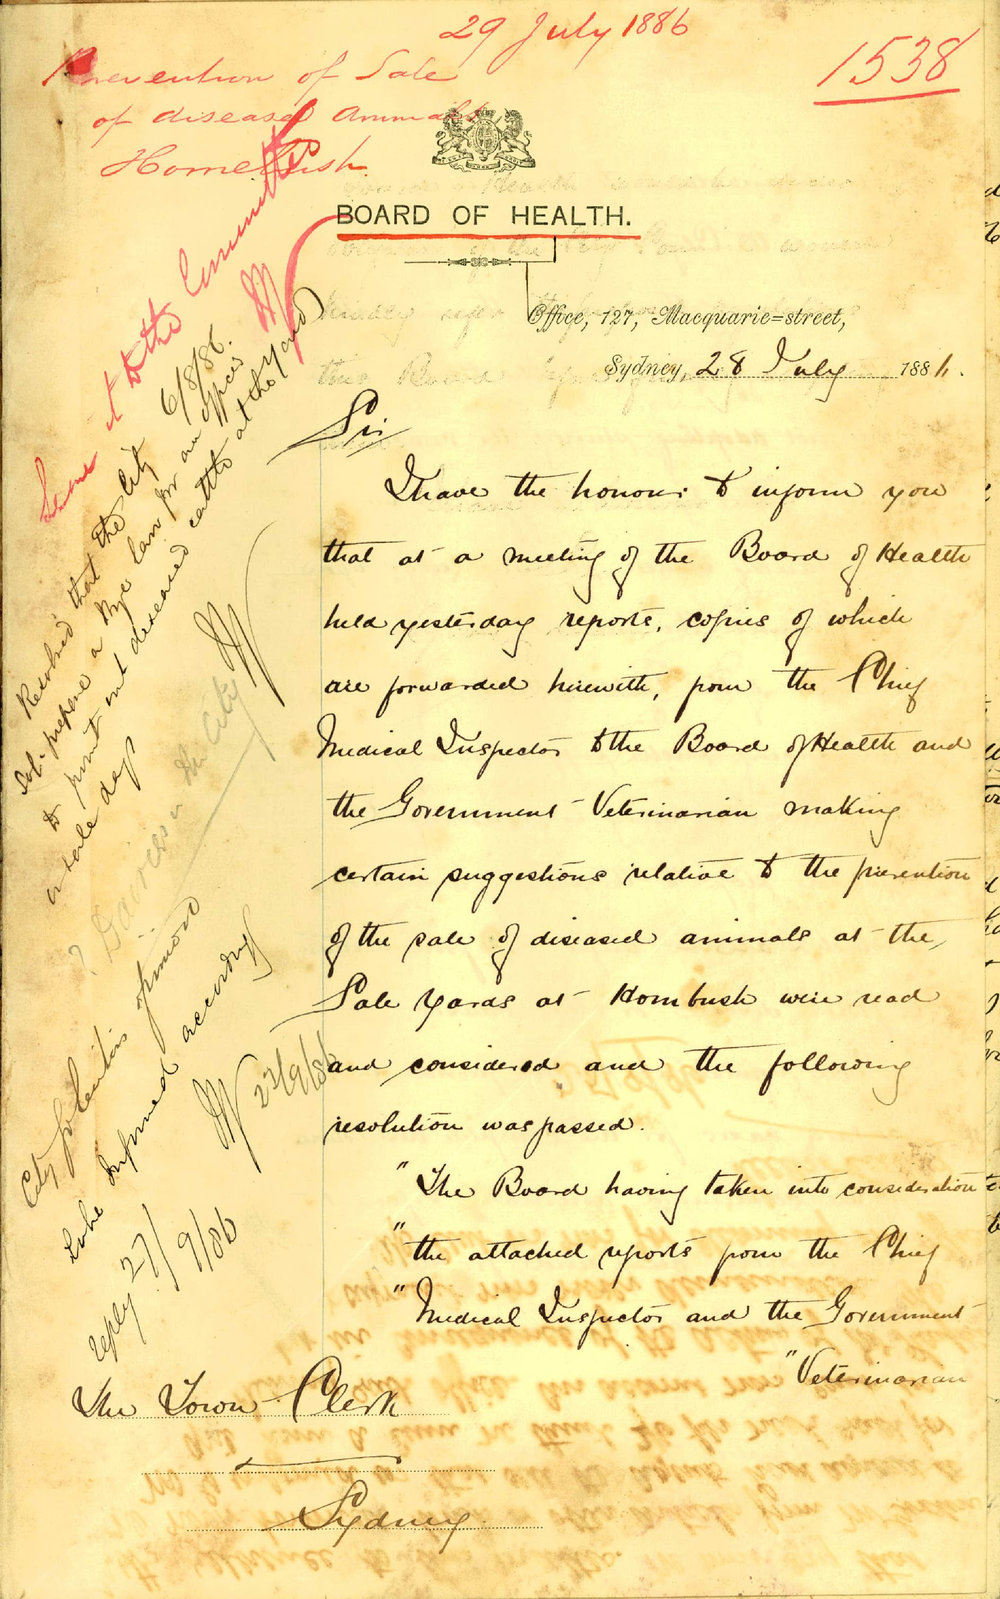 29 July 1886
1538
Prevention of Sale
of diseased Animals
Homebush
BOARD OF HEALTH.
Office, 127, Macquarie=street,
Sydney, 28 July 1886.
Sir
I have the honour to inform you
that at a meeting of the Board of Health
held yesterday reports, copies of which
are forwarded herewith, from the Chief
Medical Inspector to the Board of Health and
the Government Veterinarian making
certain suggestions relative to the prevention
of the sale of diseased animals at the
Sale Yards at Hombush were read
and considered and the following
resolution was passed.
"The Board having taken into consideration
"the attached reports from the Chief
"Medical Inspector and the Government
"Veterinarian
The Town Clerk
Sydney
to the Committee
Resolved that the City 6/8/86.
Sol. prepare a Bye law for an officer
to point out diseased cattle at the Yard
on sale days
City Solicitors opinion
to be informed accordingly
27/9/86
reply 27/9/86